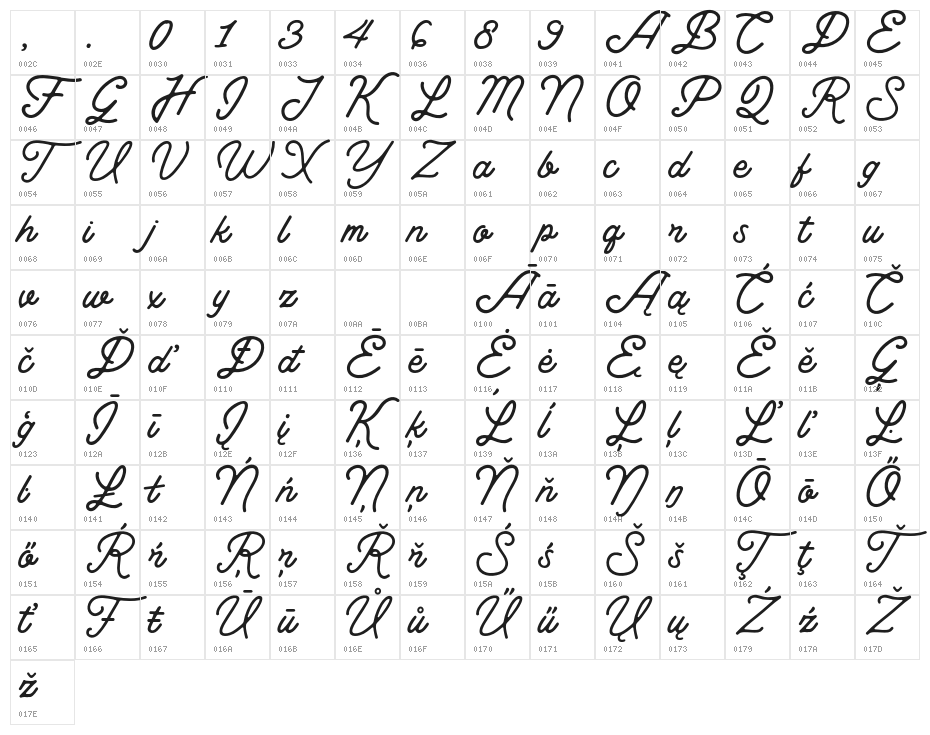 , . 0 1 3 4 6 8 9 A B C D E
002C 002E 0030 0031 0033 0034 0036 0038 0039 0041 0042 0043 0044 0045
F G H I J K L M N O P Q R S
0046 0047 0048 0049 004A 004B 004C 004D 004E 004F 0050 0051 0052 0053
T U V W X Y Z a b c d e f g
0054 0055 0056 0057 0058 0059 005A 0061 0062 0063 0064 0065 0066 0067
h i j k l m n o p q r s t u
0068 0069 006A 006B 006C 006D 006E 006F 0070 0071 0072 0073 0074 0075
v w x y z Ā ā Ą ą Ć ć Č
0076 0077 0078 0079 007A 00AA 00BA 0100 0101 0104 0105 0106 0107 010C
č Ď ď Đ đ Ē ē Ė ė Ę ę Ě ě Ģ
010D 010E 010F 0110 0111 0112 0113 0116 0117 0118 0119 011A 011B 0122
ģ Ī ī Į į Ķ ķ Ĺ ĺ Ļ ļ Ľ ľ Ŀ
0123 012A 012B 012E 012F 0136 0137 0139 013A 013B 013C 013D 013E 013F
ŀ Ł ł Ń ń Ņ ņ Ň ň Ŋ ŋ Ō ō Ő
0140 0141 0142 0143 0144 0145 0146 0147 0148 014A 014B 014C 014D 0150
ő Ŕ ŕ Ŗ ŗ Ř ř Ś ś Š š Ţ ţ Ť
0151 0154 0155 0156 0157 0158 0159 015A 015B 0160 0161 0162 0163 0164
ť Ŧ ŧ Ū ū Ů ů Ű ű Ų ų Ź ź Ž
0165 0166 0167 016A 016B 016E 016F 0170 0171 0172 0173 0179 017A 017D
ž
017E